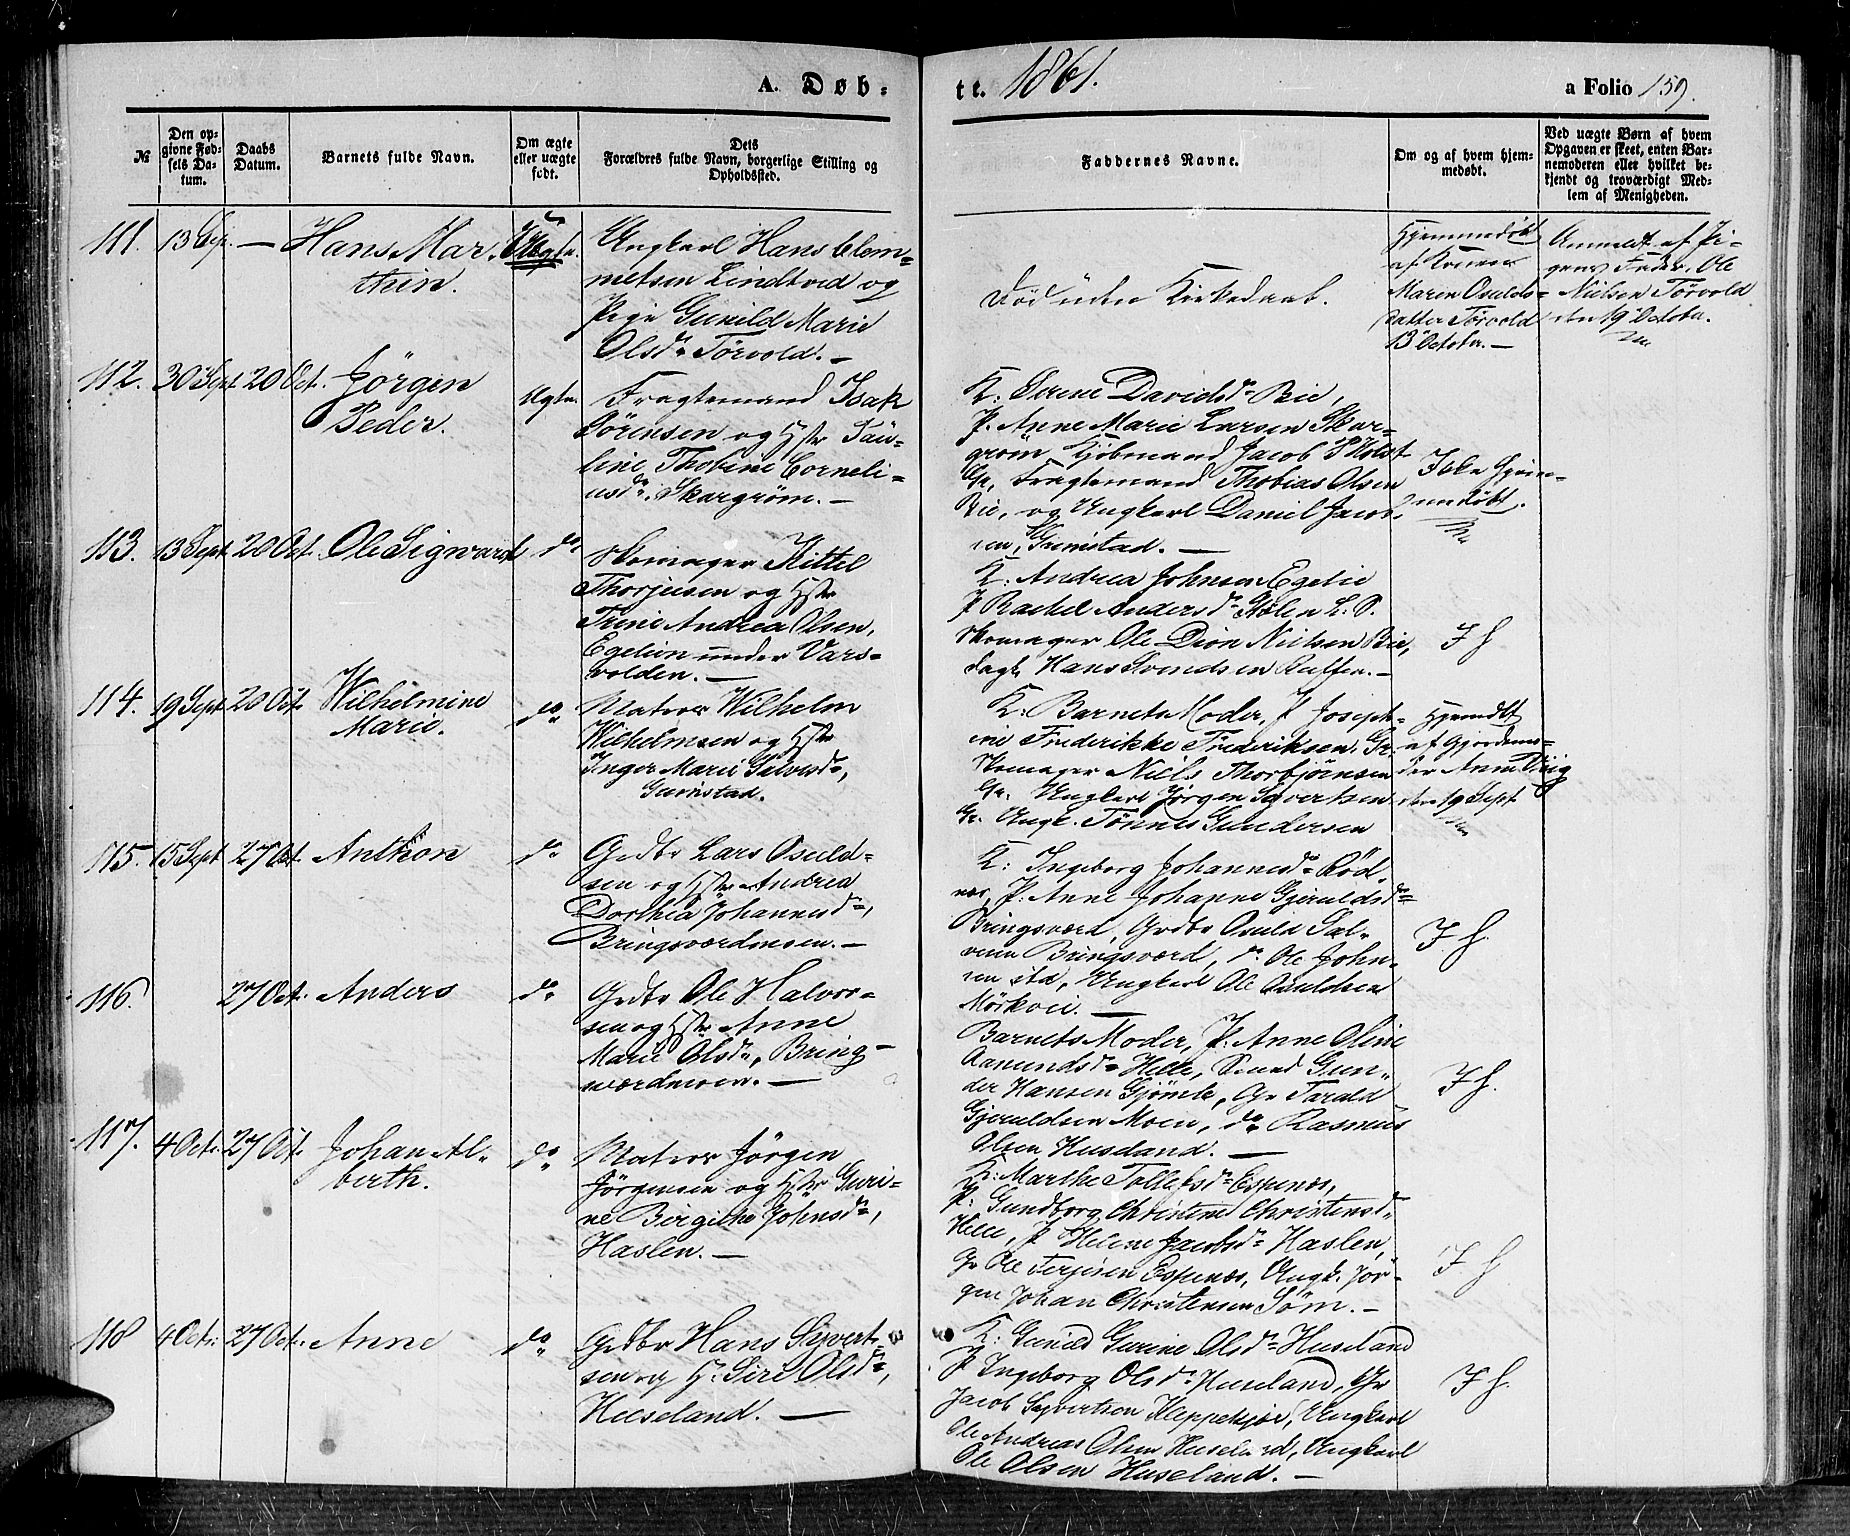 A. Døb-
tt. 1861.
a Folio 159.
№
Den op-
givne Fød-
sels Da-
tum.
Daabs
Datum.
Barnets fulde Navn.
Om ægte
eller uægte
født.
Dets
Forældres fulde Navn, borgerlige Stilling og
Opholdssted.
Faddernes Navne.
Om og af hvem hjem-
medøbt.
Ved uægte Børn af hvem
Opgaven er skeet, enten Bar-
nemoderen eller hvilket be-
kjendt og troværdigt Med-
lem af Menigheden.
111. 13 Sep. — Hans Mar-
thin.
Uægte.
Ungkarl Hans Clem-
metsen Lindtved og
Pige Gunild Marie
Olsdr Törvold. —
Død uden Kirkedaab.
Hjemmedøbt
af Konen
Maren Osulds-
datter Törvold
13 October. —
Anmeldt af Pi-
gens Fader, Ole
Nielsen Törvold
den 19 October.
112. 30 Sept 20 Oct. Jörgen
Peder.
Ægte.
Fragtemand Isak
Sörensen og Hstr Pau-
line Thobine Corneli-
usdr. Skargröm. —
K: Serene Davidsdr Bie,
P. Anne Marie Larsen Skar-
gröm Kjöbmand Jacob P Holst
Gr, Fragtemand Thobias Olsen
Bie, og Ungkarl Daniel Jacob-
sen, Grimstad. —
Ikke Hjem-
medøbt.
113. 13 Sept 20 Oct. Ole Sigward do
Skomager Kittel
Thorjusen og Hstr
Trine Andrea Olsen,
Egelien under Vars-
volden. —
K. Andrea Johnsen Egelie
P Rachel Andersdr Stölen L. S.
Skomager Ole Dion Nielsen Bie,
Dagl. Hans Svendsen —
I H
114. 19 Sept 20 Oct. Wilhelmine
Marie.
do
Matros Wilhelm
Wilhelmsen og Hstr
Inger Marie Salvesdr,
Grimstad.
K: Barnets Moder, P. Joseph-
ine Frederikke Frederiksen, Gr.
Skomager Niels Thorbjörnsen
Gr. Ungkarl Jörgen Syvertsen
Gr. Ungk. Tönnes Gundersen
Hjemdbt
af Gjordemo-
der Anne
den 19 Sept
115. 15 Sept 27 Oct. Anthon do
Grdbr Lars Osuld-
sen og Hstr Andrea
Dorthea Johannesdr,
Bringsværdmoen. —
K: Ingeborg Johannesdr Röd-
nes, P. Anne Johanne Gjeruldsdr
Bringsværd, Grdbr Osuld Sal-
vesen Bringsværd, do Ole John-
sen std, Ungkarl Ole Osuldsen
Mörkvei. —
I H.
116. 27 Oct. Anders do
Grdbr Ole Halvor-
sen og Hstr Anne
Marie Olsdr, Bring-
sværdmoen. —
Barnets Moder, P. Anne Oline
Aanundsdr Helle, Smed Gun-
der Hansen Gjömle, Gr Tarald
Gjeruldsen Moen, do Rasmus
Olsen Husland. —
I H.
117. 4 Oct. 27 Oct. Johan Al-
berth.
do
Matros Jörgen
Jörgensen og Hstr Guri-
ne Birgithe Johnsdr,
Haslen. —
K: Marthe Tollefsdr Espenæs,
P. Gundborg Christine Christensdr
Helle, P Helene Jacobsdr Haslen,
Gr Ole Terjesen Espenæs, Ungk. Jör-
gen Johan Christensen Söm. —
I H
118 4 Oct. 27 Oct. Anne do
Grdbr Hans Syvert-
sen og H. Siri Olsdr,
Heeseland. —
K: Gunild Gurine Olsdr Huseland
P Ingeborg Olsdr Huseland, Gr
Jacob Syvertsen Kleppekjær, Ungkarl
Ole Andreas Olsen Huseland, Ungkarl
Ole Olsen Huseland. —
I H.